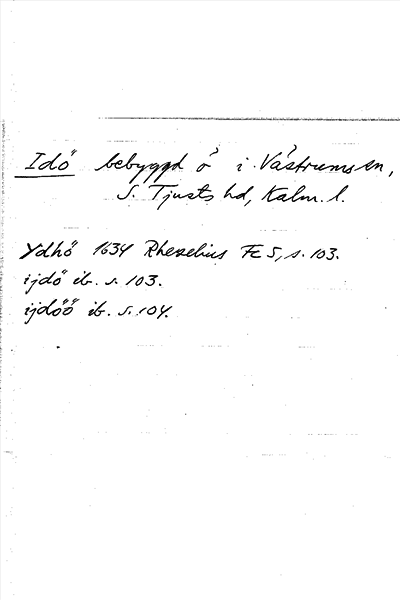 Idö bebyggd ö i Västrums sn,
S. Tjusts hd, Kalm. l.
Ydhö 1634 Rhezelius FC 5, s. 103.
ijdö ib. s. 103.
ijdöö ib. s. 104.